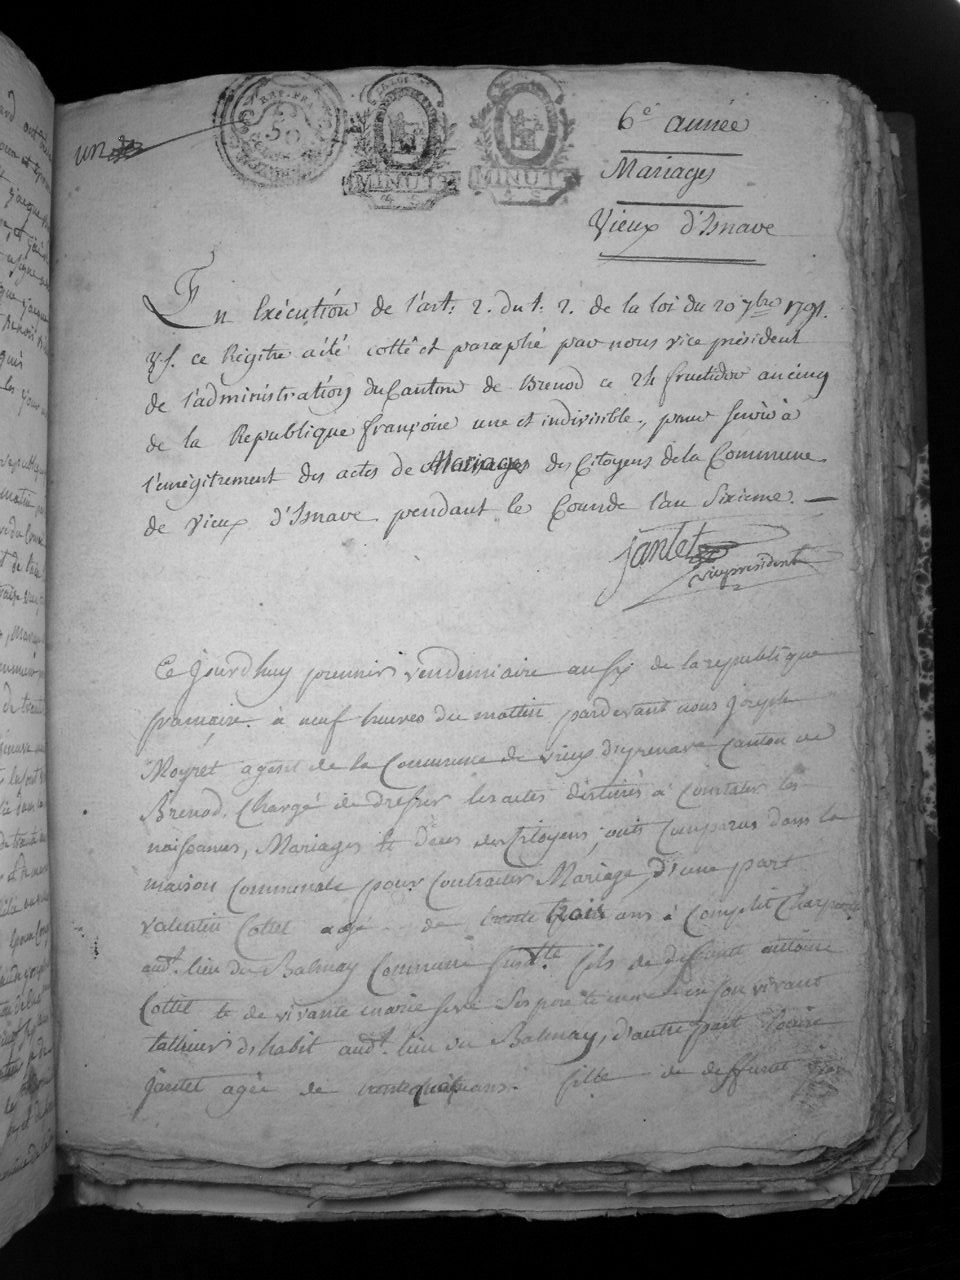 un
REP. FRA.
50
MINUTE
MINUTE
6e année
Mariages
Vieux d'Isnave
En Exécution de l'art: 2. du t. 2. de la loi du 20 7bre 1791.
ce Régitre a été cotté et paraphé par nous vice président
de l'administration du Canton de Brenod ce 24 fructidor an cinq
de la Republique françoise une et indivisible, pour servir à
l'enrégitrement des actes de Mariages des Citoyens de la Commune
de Vieux d'Isnave pendant le Cours de l'an Sixieme.
Jantet
vice président
Ce Jourdhuy premier vendemiaire an six de la republique
francaise à neuf heures du mattin pardevant nous Joseph
Moyret agent de la Commune de vieux disenave canton de
Brenod, Chargé de dresser les actes destinés à Constater les
naissances, Mariages & Décés des Citoyens, sont Comparus dans la
maison Communale pour Contracter Mariage, d'une part
valentin Cottet agé de trente trois ans à Complit
audt. lieu du Balmay Commune susdte. fils de deffunt antoine
Cottet & de vivante marie en son vivant
tailleur d'habit audt. lieu du Balmay, d'autre part
Jantet agée de ans. fille de deffunt